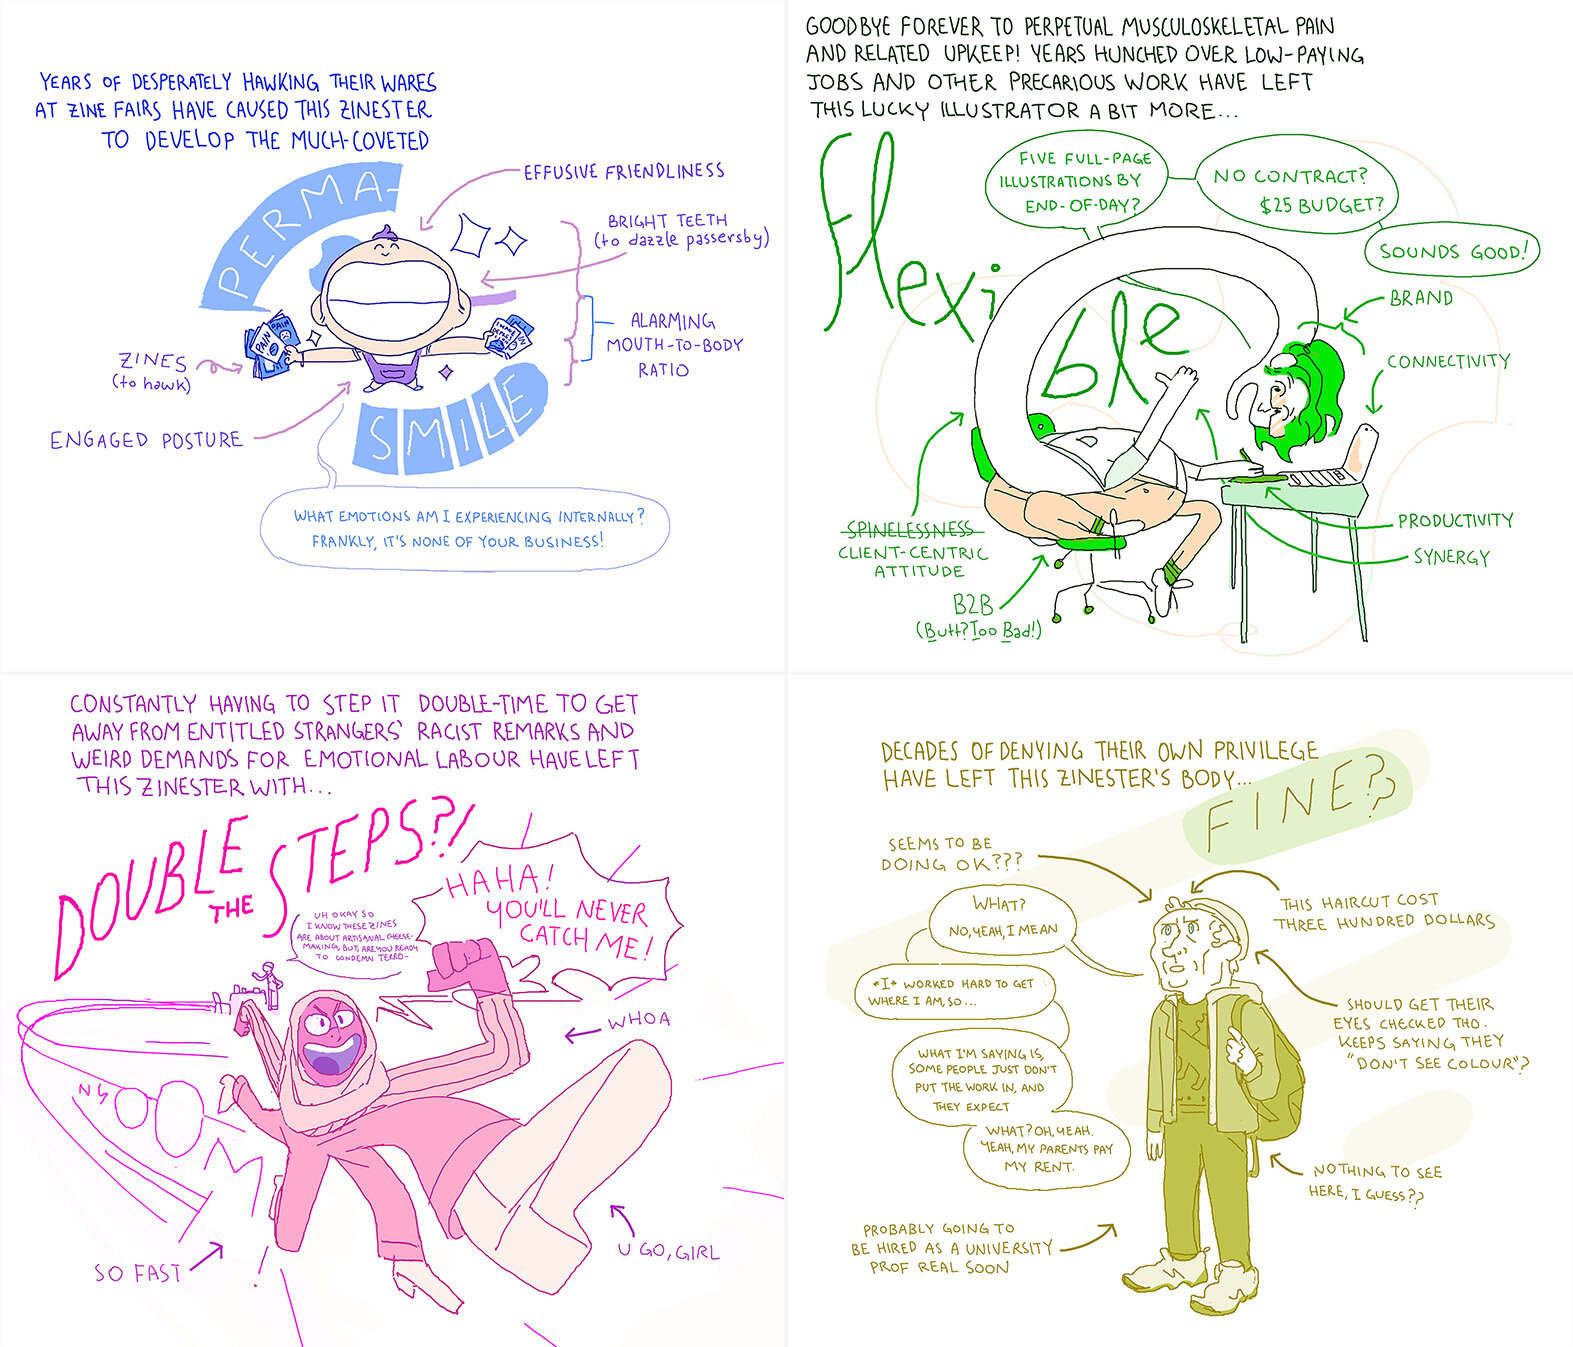 YEARS OF DESPERATELY HAWKING THEIR WARES
AT ZINE FAIRS HAVE CAUSED THIS ZINESTER
TO DEVELOP THE MUCH-COVETED
PERMA-
SMILE
EFFUSIVE FRIENDLINESS
BRIGHT TEETH
(to dazzle passersby)
ALARMING
MOUTH-TO-BODY
RATIO
ZINES
(to hawk)
PAIN
PAIN
ENGAGED POSTURE
WHAT EMOTIONS AM I EXPERIENCING INTERNALLY?
FRANKLY, IT'S NONE OF YOUR BUSINESS!
GOODBYE FOREVER TO PERPETUAL MUSCULOSKELETAL PAIN
AND RELATED UPKEEP! YEARS HUNCHED OVER LOW-PAYING
JOBS AND OTHER PRECARIOUS WORK HAVE LEFT
THIS LUCKY ILLUSTRATOR A BIT MORE...
Flexi
ble
FIVE FULL-PAGE
ILLUSTRATIONS BY
END-OF-DAY?
NO CONTRACT?
$25 BUDGET?
SOUNDS GOOD!
BRAND
CONNECTIVITY
PRODUCTIVITY
SYNERGY
SPINELESSNESS
CLIENT-CENTRIC
ATTITUDE
B2B
(Butt? Too Bad!)
CONSTANTLY HAVING TO STEP IT DOUBLE-TIME TO GET
AWAY FROM ENTITLED STRANGERS' RACIST REMARKS AND
WEIRD DEMANDS FOR EMOTIONAL LABOUR HAVE LEFT
THIS ZINESTER WITH...
DOUBLE
THE
STEPS?!
UH OKAY SO
I KNOW THESE ZINES
ARE ABOUT ARTISANAL CHEESE-
MAKING, BUT, ARE YOU READY
TO CONDEMN TERRO-
HAHA!
YOU'LL NEVER
CATCH ME!
WHOA
U GO, GIRL
SO FAST
DECADES OF DENYING THEIR OWN PRIVILEGE
HAVE LEFT THIS ZINESTER'S BODY...
FINE??
SEEMS TO BE
DOING OK???
THIS HAIRCUT COST
THREE HUNDRED DOLLARS
WHAT?
NO, YEAH, I MEAN
*I* WORKED HARD TO GET
WHERE I AM, SO...
WHAT I'M SAYING IS,
SOME PEOPLE JUST DON'T
PUT THE WORK IN, AND
THEY EXPECT
WHAT? OH, YEAH.
YEAH, MY PARENTS PAY
MY RENT.
SHOULD GET THEIR
EYES CHECKED THO.
KEEPS SAYING THEY
"DON'T SEE COLOUR"?
NOTHING TO SEE
HERE, I GUESS??
PROBABLY GOING TO
BE HIRED AS A UNIVERSITY
PROF REAL SOON